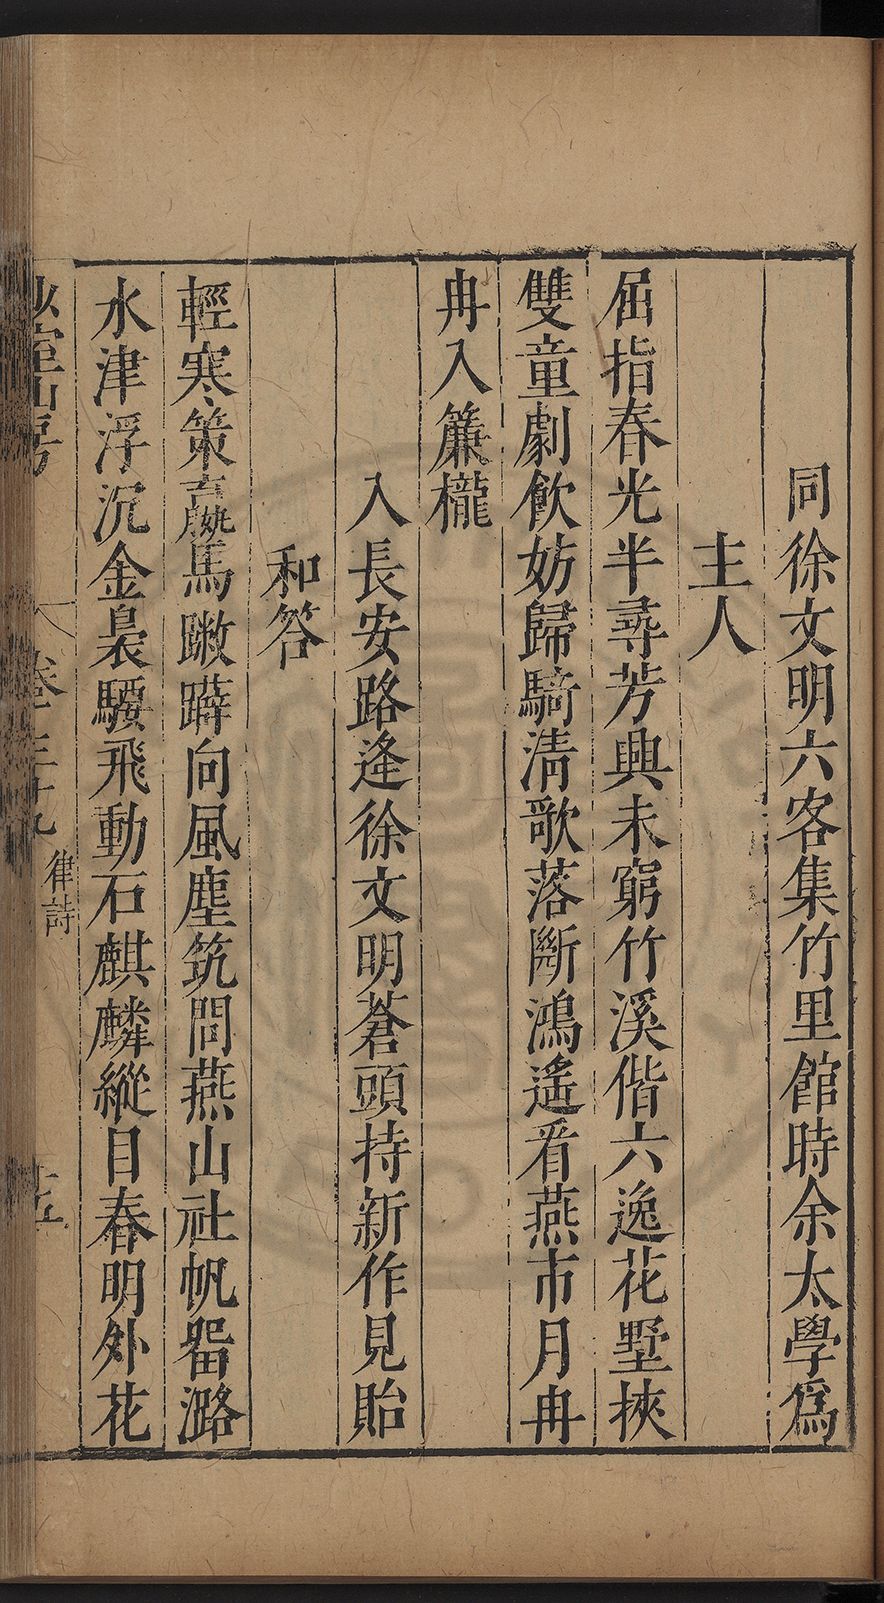 同徐文明六客集竹里館時余太學爲
主人
屈指春光半尋芳興未窮竹溪偕六逸花墅挾
雙童劇飲妨歸騎清歌落斷鴻遙看燕市月冉
冉入簾櫳
入長安路逢徐文明蒼頭持新作見貽
和答
輕寒策羸馬躑躅向風塵筑問燕山社帆畱潞
水津浮沉金裊騕飛動石麒麟縱目春明外花
室山房
卷三十九
律詩
十五